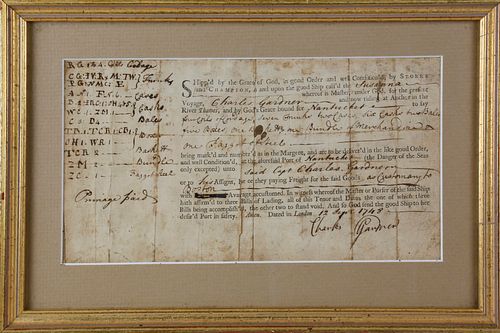 SHipp'd by the Grace of God, in good Order and well Condition'd, by STORKE
and CHAMPION, in and upon the good Ship call'd the Susanna
whereof is Master, under God, for the present
Voyage, Charles Gardner and now riding at Anchor in the
River Thames, and by God's Grace bound for Nantucket to say
four Coils Cordage Seven Trunks two Cases Six Casks two Bales
five Boxes one Baskt one Bundle of Merchandize and
one Faggot Steel
being mark'd and number'd as in the Margent, and are to be deliver'd in the like good Order,
and well Condition'd, at the aforesaid Port of Nantucket (the Danger of the Seas
only excepted) unto Said Capt Charles Gardner
or to his Assigns, he or they paying Freight for the said Goods as Customary to
Boston
Avarage accustomed. In witness whereof the Master or Purser of the said Ship
hath affirm'd to three Bills of Lading, all of this Tenor and Date, the one of which three
Bills being accomplish'd, the other two to stand void. And so God send the good Ship to her
desir'd Port in safety. Amen. Dated in London 12 Sept 1748
Charles Gardner
Cordage
Trunks
Cases
Casks
Bales
Boxes
Baskt
Bundle
Primage paid